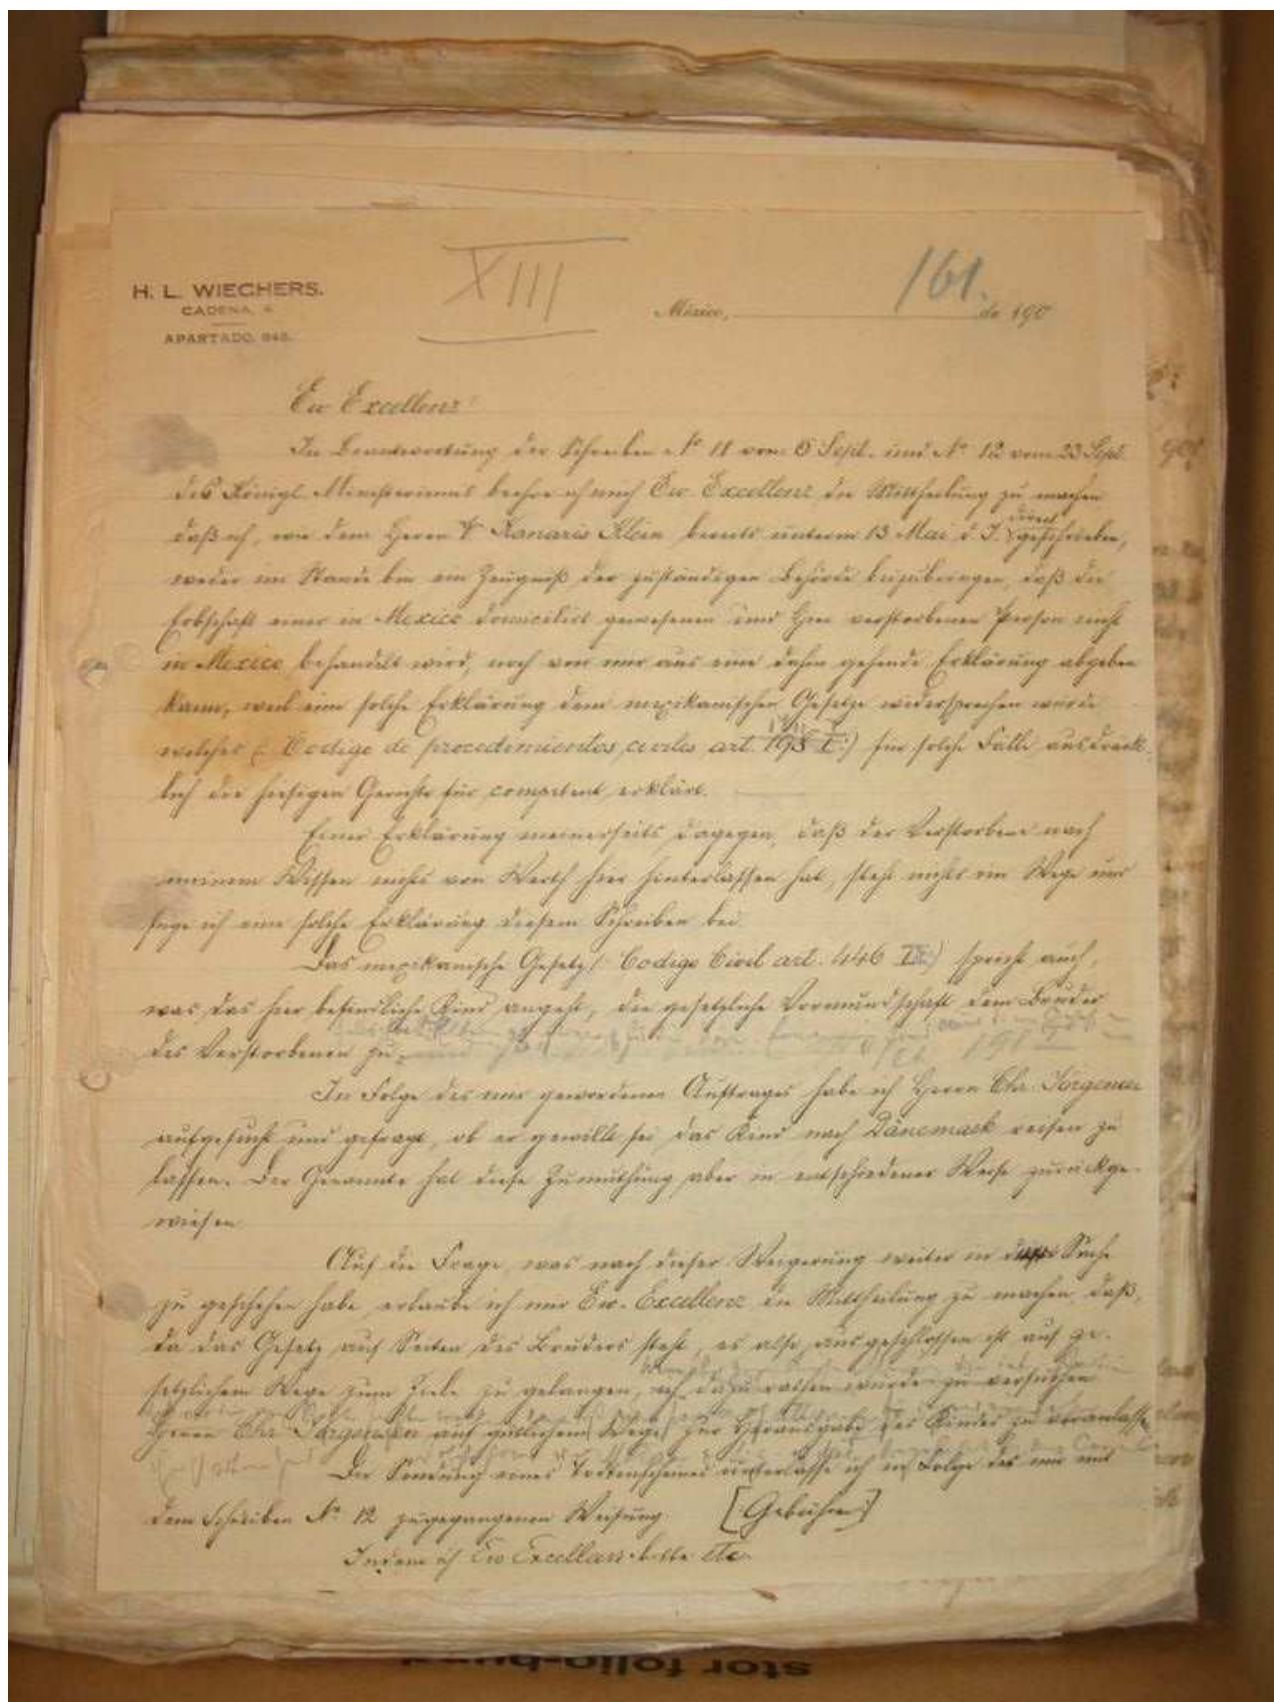 H. L. WIECHERS.
CADENA,
APARTADO,
XIII
161.
México, de 190
Ew Excellenz
In Beantwortung der Schreiben No 11 vom 5 Sept. und No 12 vom 23 Sept.
des Königl. Ministeriums beehre ich mich Ew. Excellenz die Mittheilung zu machen
daß ich, wie dem Herrn Kanaris Klein bereits unterm 13 Mai d. J. direct geschrieben,
weder im Stande bin ein Zeugniß der zuständigen Behörde beizubringen, daß die
Erbschaft einer in Mexico domicilirt gewesenen und hier verstorbenen Person nicht
in Mexico behandelt wird, noch von mir aus eine dahin gehende Erklärung abgeben
kann, weil eine solche Erklärung dem mexikanischen Gesetze widersprechen würde
welches (: Codigo de procedimientos civiles art. :) für solche Fälle ausdrück-
lich die hiesigen Gerichte für competent erklärt.
Einer Erklärung meinerseits dagegen, daß der Verstorbene nach
meinem Wissen nichts von Werth hier hinterlassen hat, steht nichts im Wege und
füge ich eine solche Erklärung diesem Schreiben bei.
Das mexikanische Gesetz (: Codigo Civil art. 446 :) spricht auch,
was das hier befindliche Kind angeht, die gesetzliche Vormundschaft dem Bruder
des Verstorbenen zu,
In Folge des mir gewordenen Auftrages habe ich Herrn Chr. Jörgensen
aufgesucht und gefragt, ob er gewillt sei das Kind nach Dänemark reisen zu
lassen. Der Genannte hat diese Zumuthung aber in entschiedener Weise zurückge-
wiesen.
Auf die Frage, was nach dieser Weigerung weiter in Sache
zu geschehen habe, erlaube ich mir Ew. Excellenz die Mittheilung zu machen, daß,
da das Gesetz auf Seiten des Bruders steht, es also ausgeschlossen ist auf ge-
setzlichem Wege zum Ziele zu gelangen, ich dazu rathen würde zu versuchen
Herrn Chr. Jörgensen auf gütlichem Wege zur Herausgabe des Kindes zu veranlassen
Die Sendung eines Todtenscheines unterlasse ich in Folge des mir mit
dem Schreiben No 12 zugegangenen Weisung. [Gebühren]
Indem ich Ew Excellenz bitte etc.
stor folio-